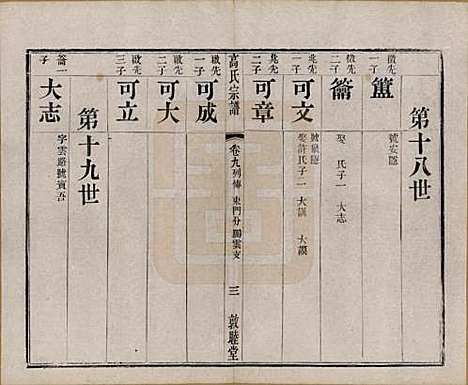 第十八世
徵先一子
簠
號安隱
徵先二子
籥
娶 氏子一 大志
兆先一子
可文
號嵩隱
娶許氏子二 大謨 大謨
兆先二子
可章
高氏宗譜
卷九列傳 東門分勝雲支
三
敦睦堂
啟先一子
可成
啟先二子
可大
啟先三子
可立
第十九世
籥一子
大志
字雲巖號賓吾